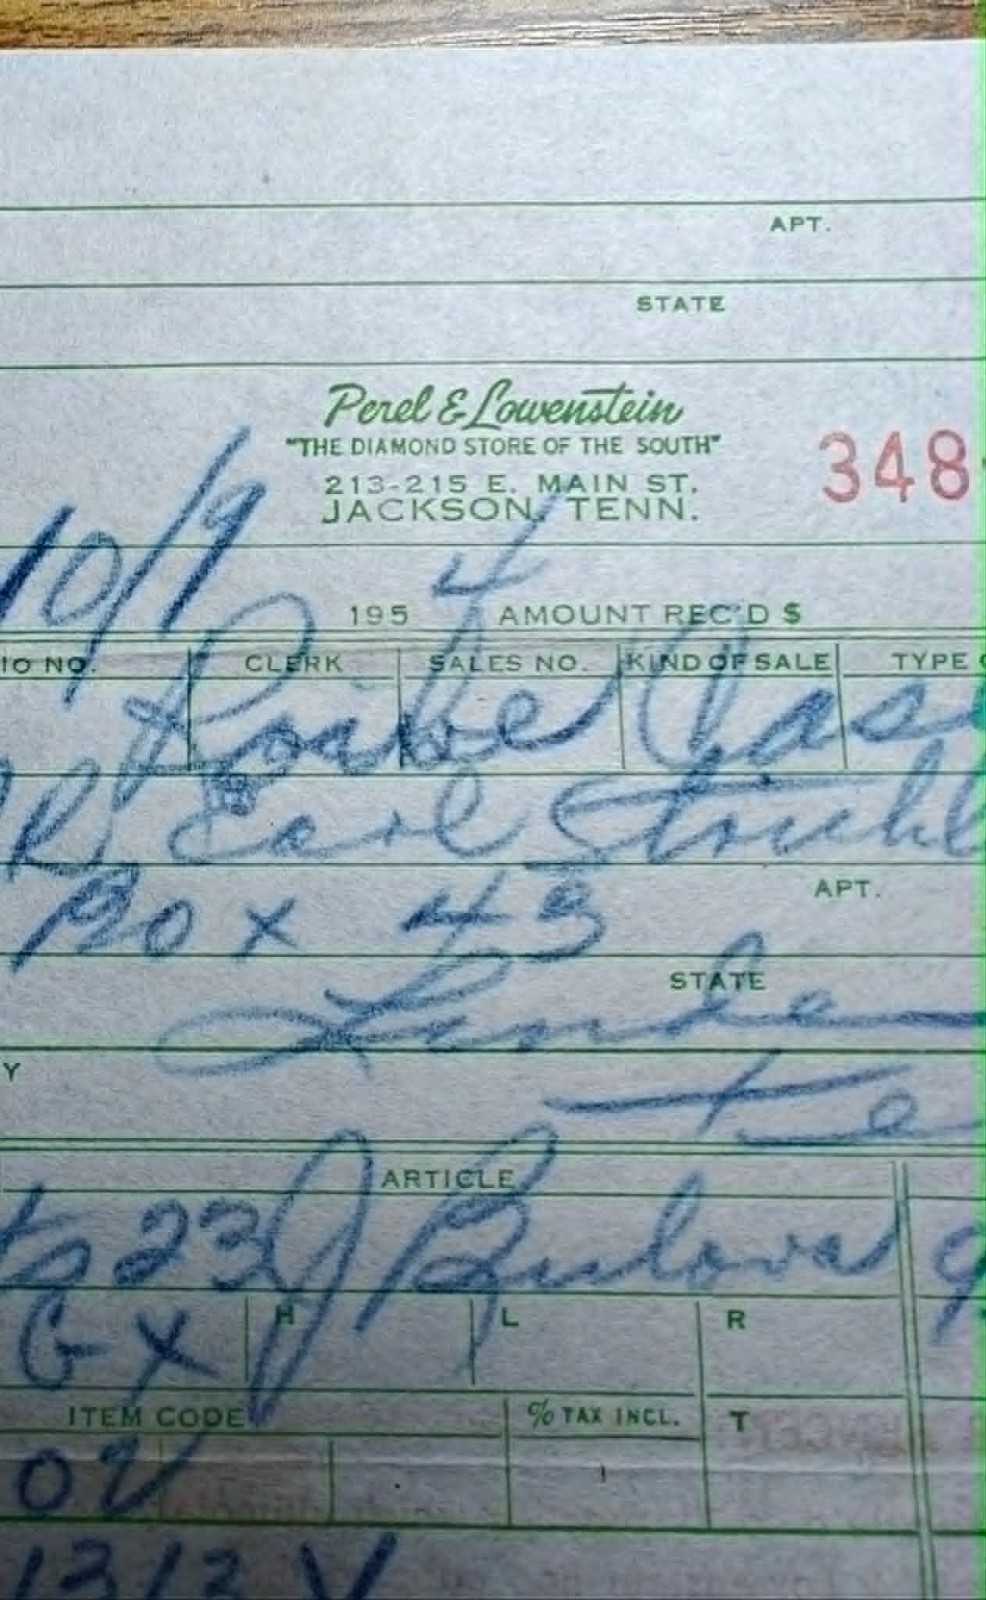 APT.
STATE
Perel & Lowenstein
"THE DIAMOND STORE OF THE SOUTH"
213-215 E. MAIN ST.
JACKSON, TENN.
348
10/9
1954 AMOUNT REC'D $
IO NO. CLERK SALES NO. KIND OF SALE TYPE
Earl
Box 43
APT.
STATE
Linden
Y
Te
ARTICLE
23 J Bulova
GX H L R
ITEM CODE % TAX INCL. T
1313 V